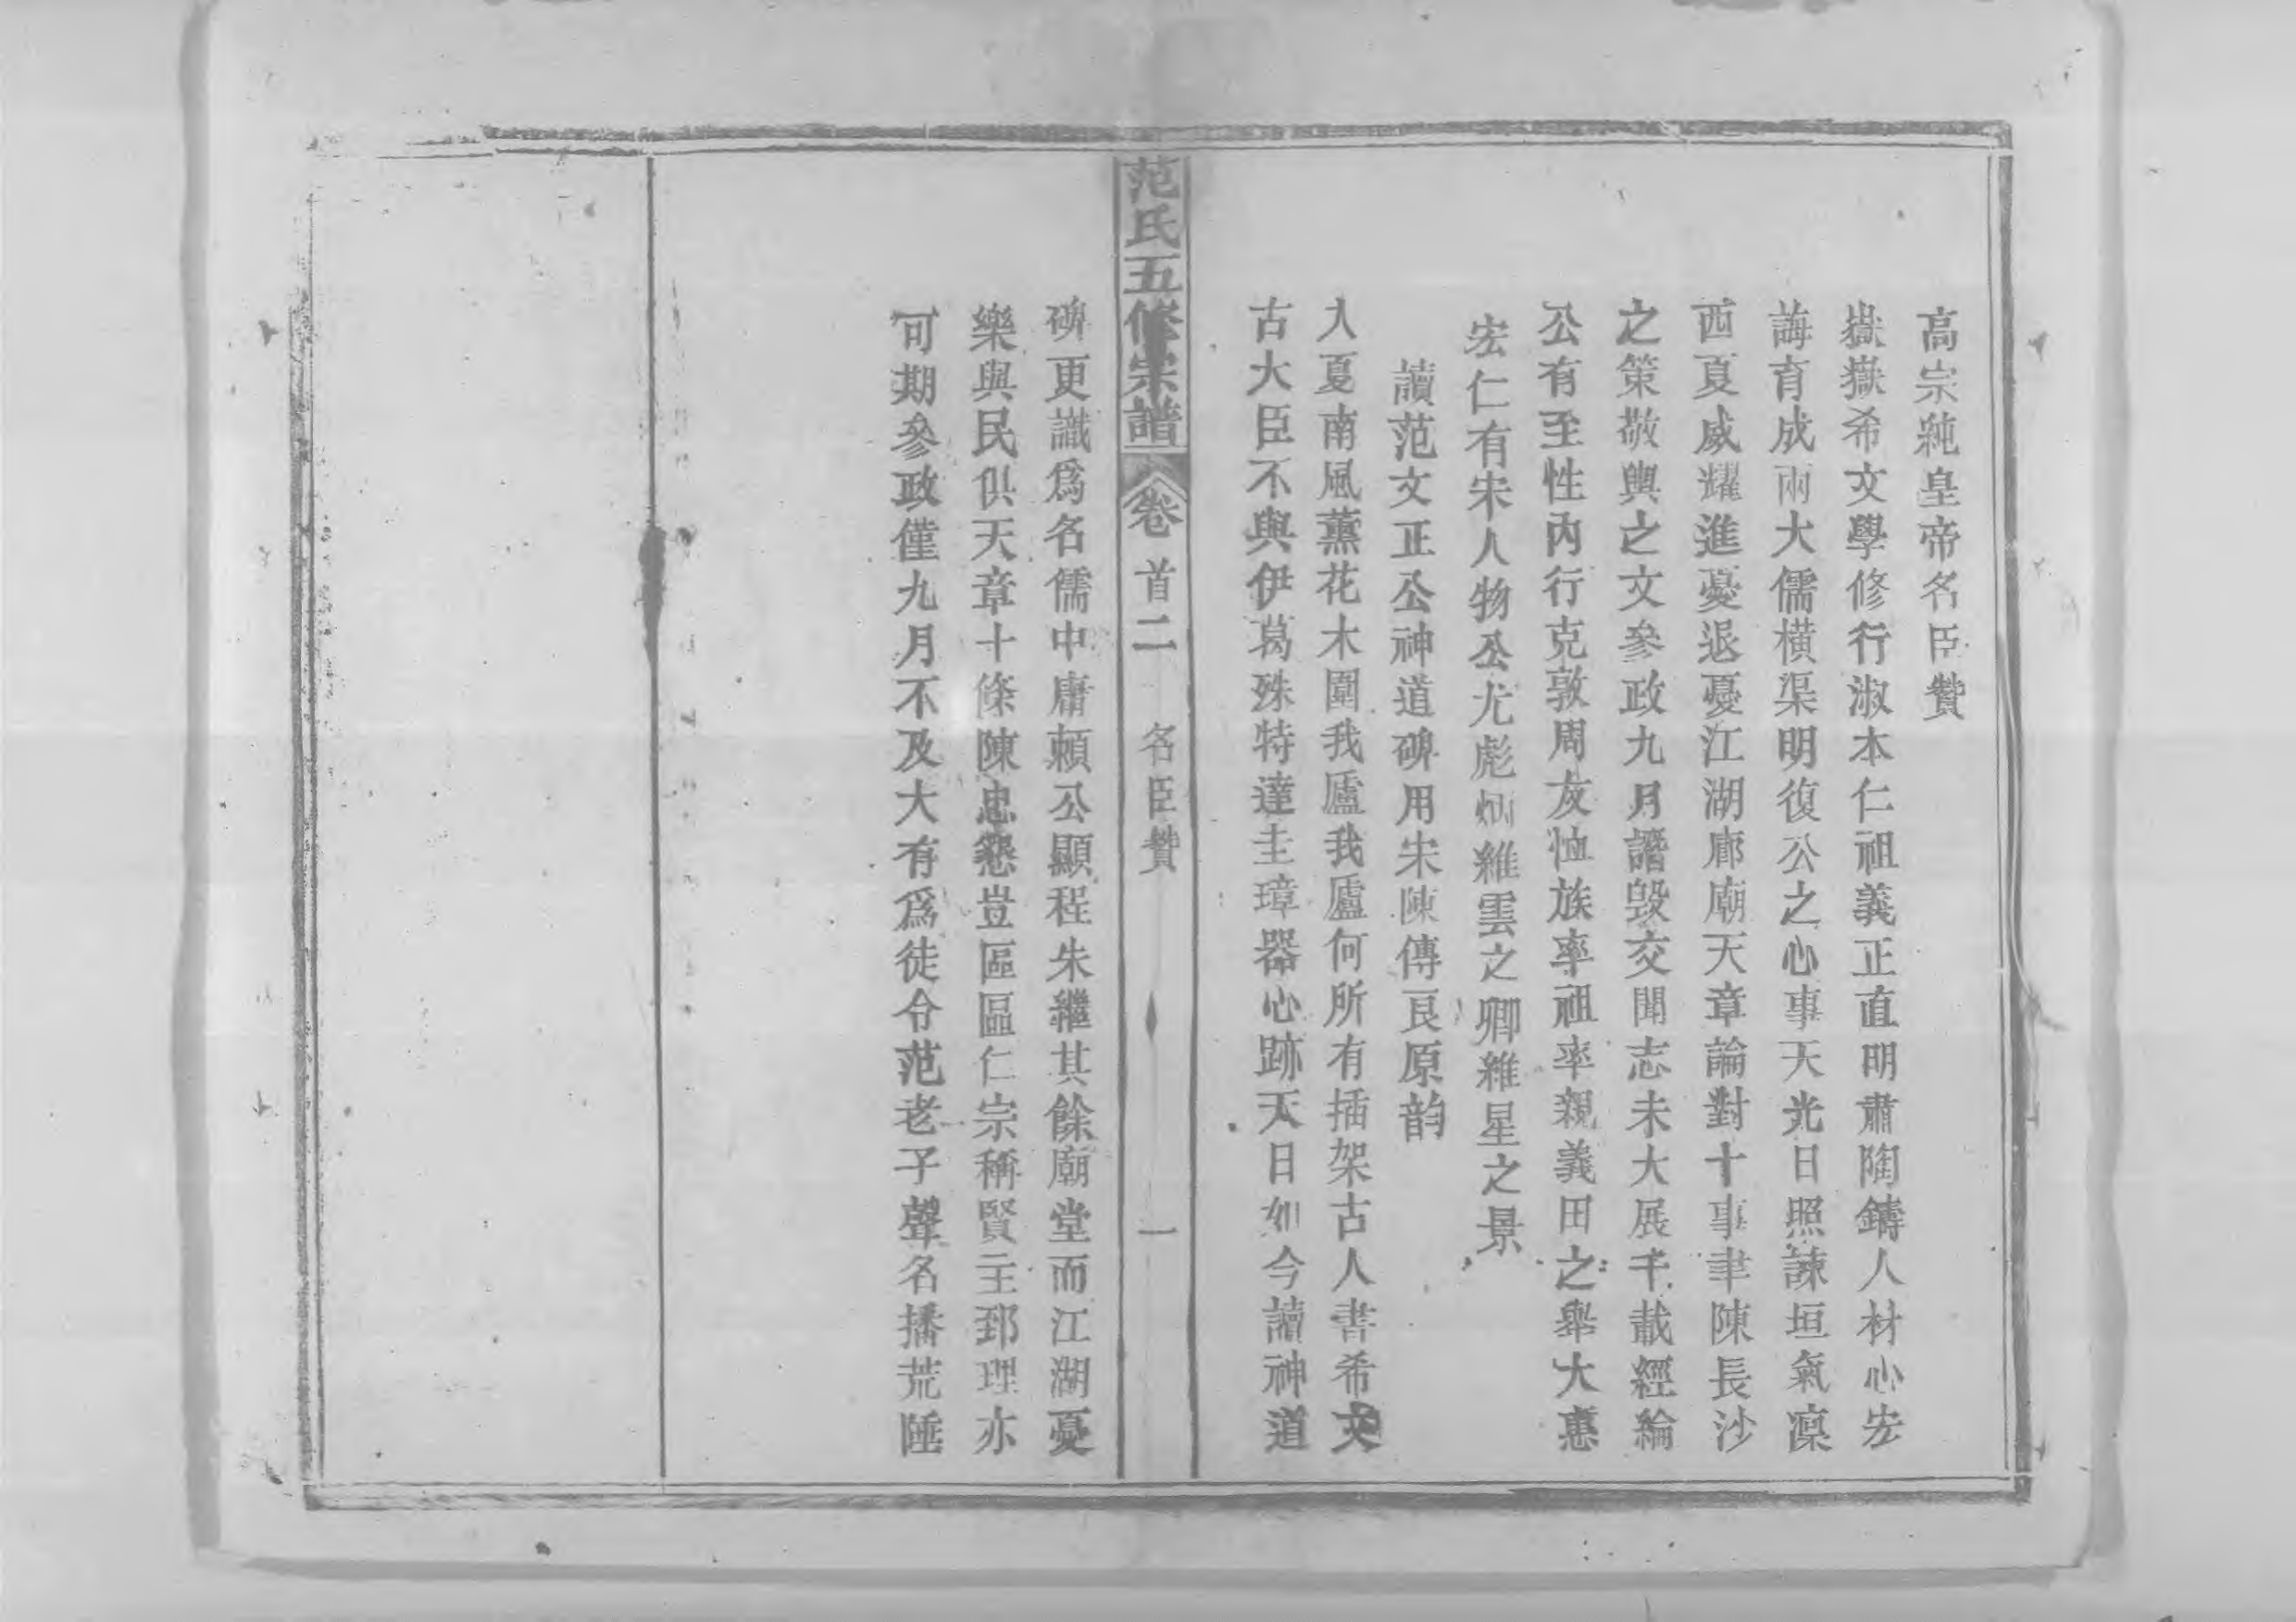 高宗純皇帝名臣贊
嶽嶽希文學修行淑本仁祖義正直明肅陶鑄人材心宏
誨育成兩大儒橫渠明復公之心事天光日照諫垣氣凜
西夏威耀進憂退憂江湖廊廟天章論對十事聿陳長沙
之策敬輿之文參政九月譖毀交聞志未大展千載經綸
公有至性內行克敦周友恤族率祖率親義田之舉大惠
宏仁有宋人物公尤彪炳維雲之卿維星之景
讀范文正公神道碑用朱陳傳良原韵
入夏南風薰花木圍我廬我廬何所有插架古人書希文
古大臣不與伊葛殊特達圭璋器心跡天日如今讀神道
范氏五修宗譜 卷首二 名臣贊 一
碑更識為名儒中庸賴公顯程朱繼其餘廟堂而江湖憂
樂與民俱天章十條陳忠懇豈區區仁宗稱賢主郅理亦
可期參政僅九月不及大有為徒令范老子聲名播荒陲